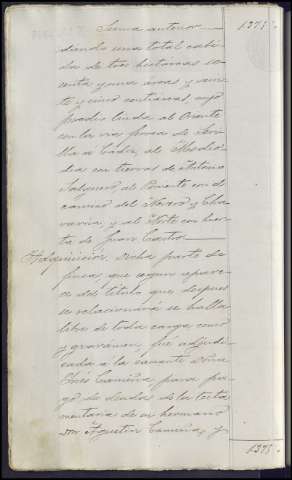 Suma anterior 1375
diendo una total cabi-
da de tres hectáreas se-
senta y una áreas y vein-
te y cinco centiáreas, cuyo
predio linda al Oriente
con la vía férrea de Sevi-
lla a Cádiz, al Mediodía
con tierras de Antonio
Salguero, al Poniente con el
camino del
y al Norte con huer-
ta de Juan Castro.
Adquisición. Dicha parte de
finca, que según apare-
ce del título que después
se relacionará se halla
libre de toda carga, censo
y gravamen, fué adjudi-
cada a la causante Doña
Inés Carreña, para pa-
go de deudas de la testa-
mentaría de su hermano
Don Agustín Carreña, y
1375